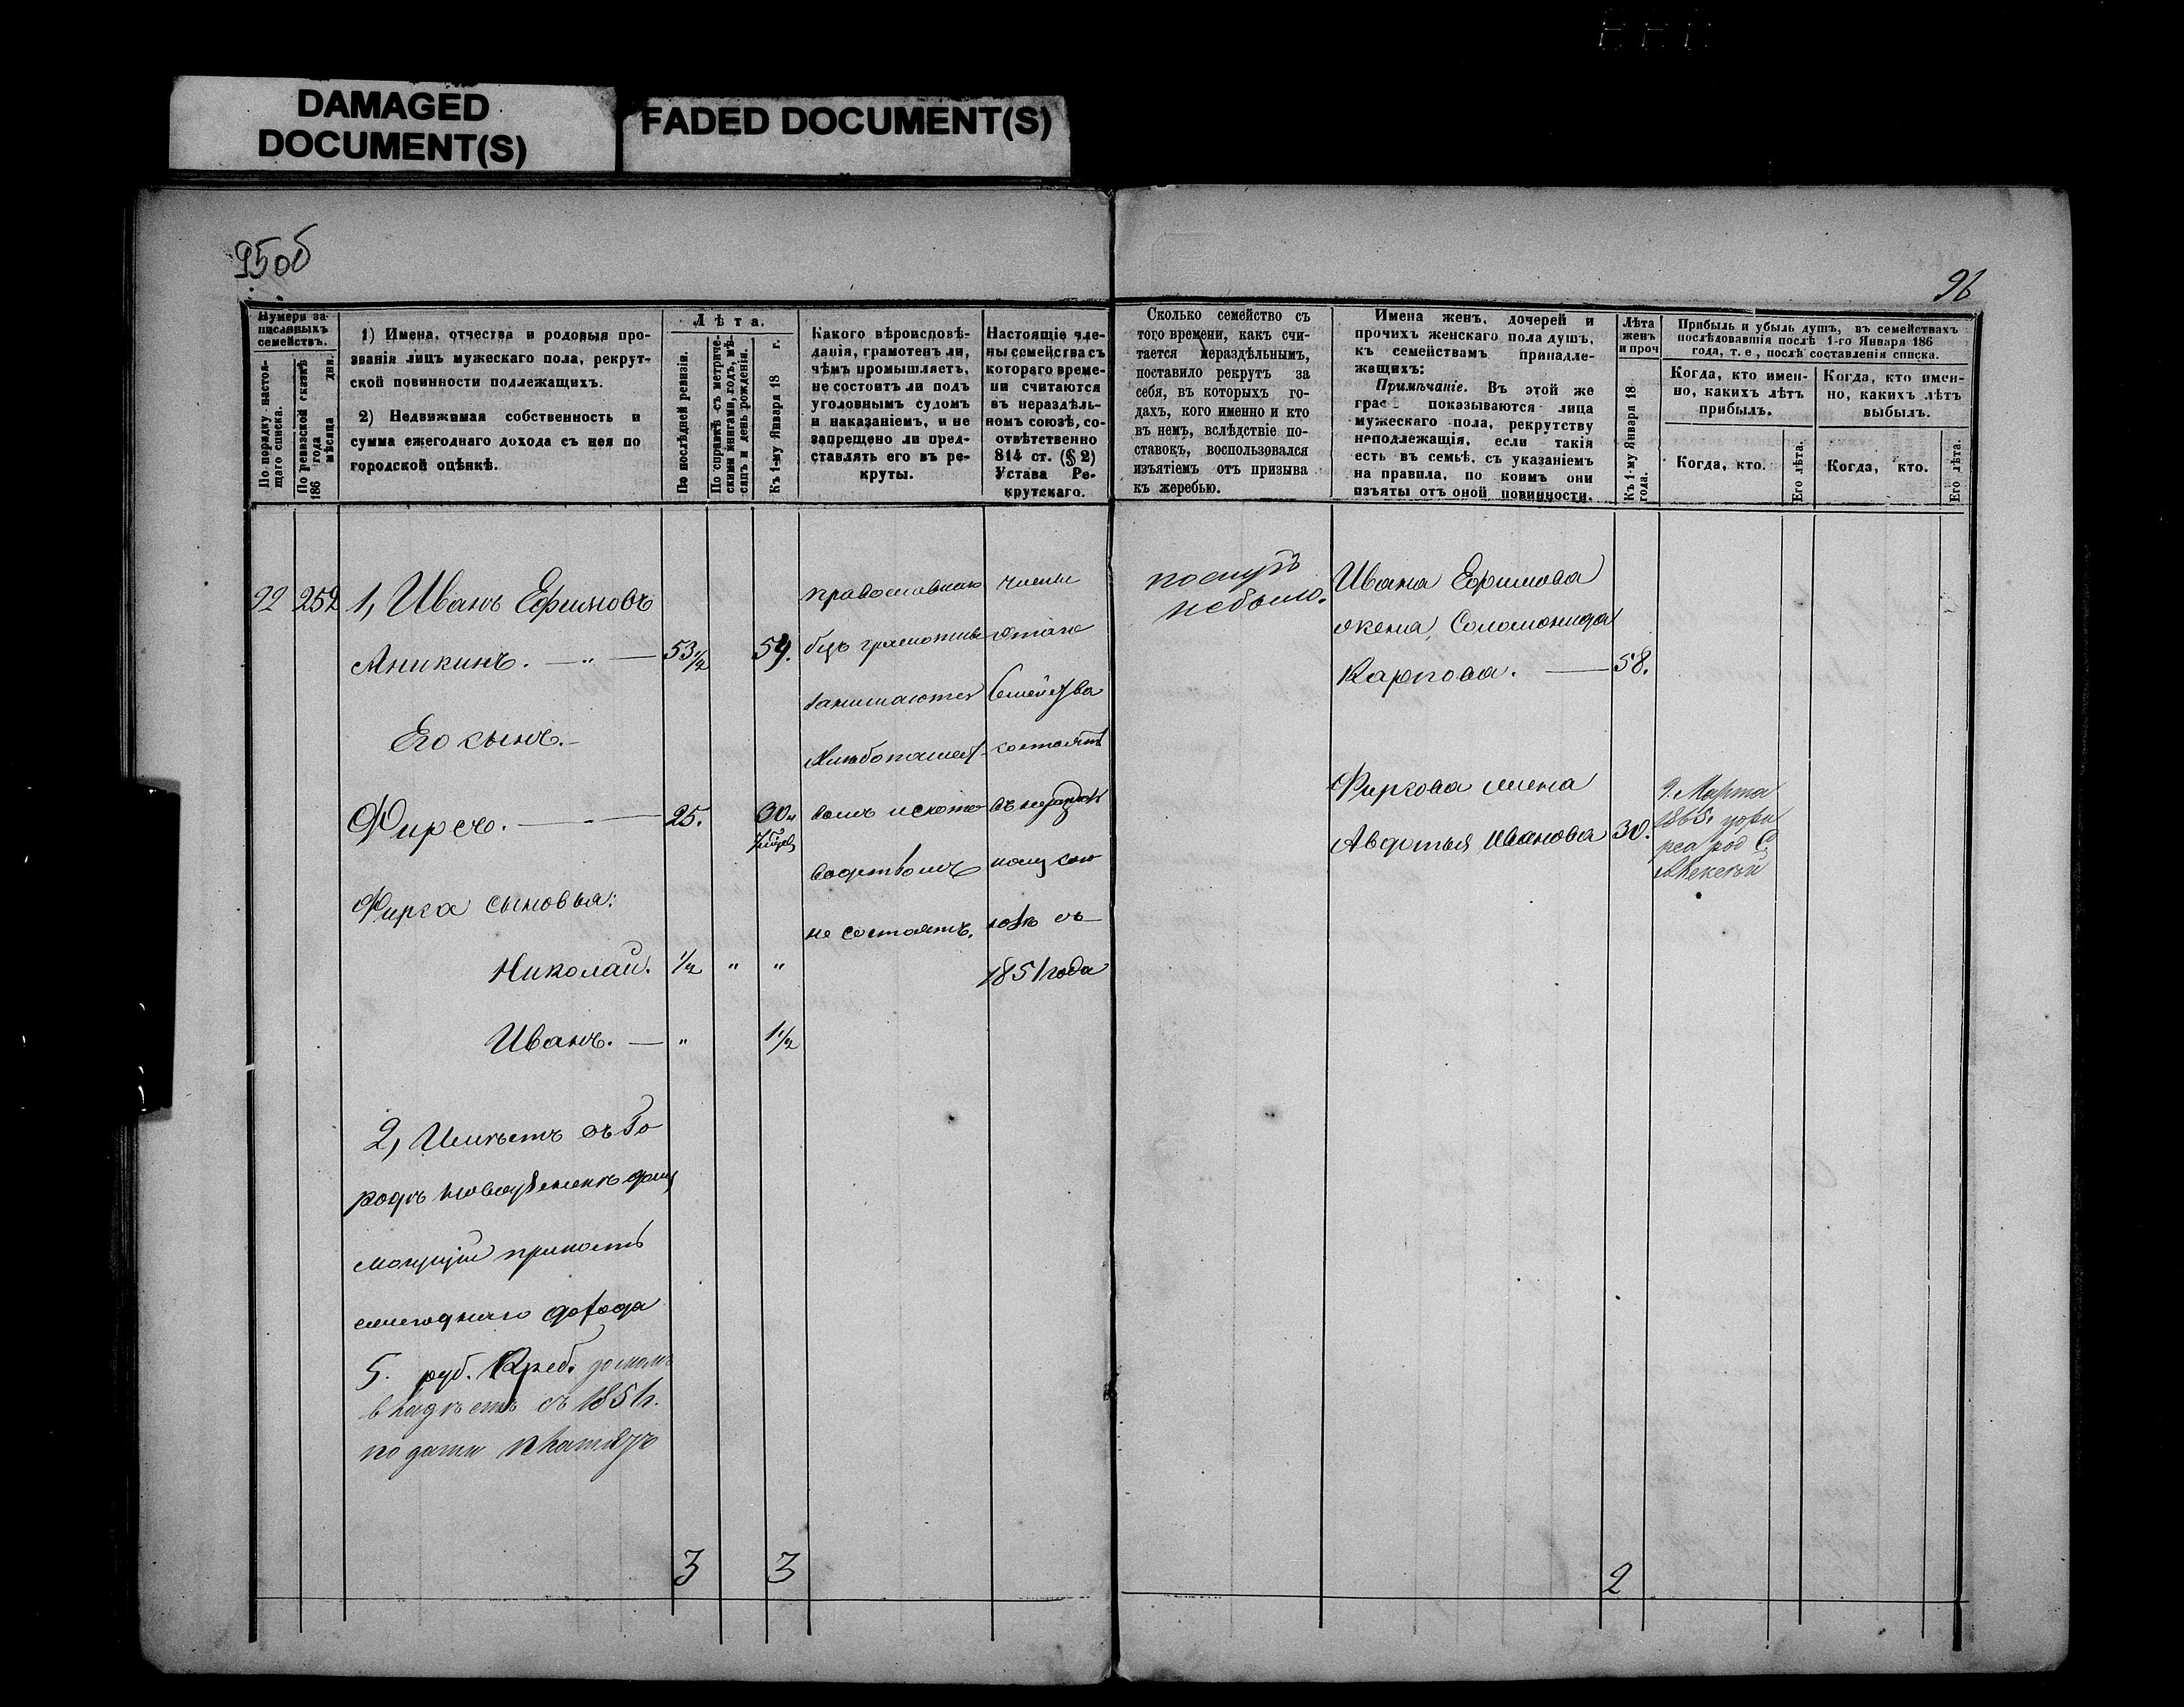 DAMAGED
DOCUMENT(S)
FADED DOCUMENT(S)
95об
96
Нумера за-
писанныхъ
семействъ.
По порядку настоя-
щаго списка.
По ревизской сказкѣ
186 года
мѣсяца дня.
1) Имена, отчества и родовыя про-
званія лицъ мужескаго пола, рекрут-
ской повинности подлежащихъ.
2) Недвижимая собственность и
сумма ежегоднаго дохода съ нея по
городской оцѣнкѣ.
Лѣта.
По послѣдней ревизіи.
По справкѣ съ метриче-
скими книгами, годъ, мѣ-
сяцъ и день рожденія.
Къ 1-му Января 18 г.
Какого вѣроисповѣ-
данія, грамотенъ ли,
чѣмъ промышляетъ,
не состоитъ ли подъ
уголовнымъ судомъ
и наказаніемъ, и не
запрещено ли пред-
ставлять его въ ре-
круты.
Настоящіе чле-
ны семейства съ
котораго време-
ни считаются
въ нераздѣль-
номъ союзѣ, со-
отвѣтственно
814 ст. (§ 2)
Устава Ре-
крутскаго.
Сколько семейство съ
того времени, какъ счи-
тается нераздѣльнымъ,
поставило рекрутъ за
себя, въ которыхъ го-
дахъ, кого именно и кто
въ немъ, вслѣдствіе по-
ставокъ, воспользовался
изъятіемъ отъ призыва
къ жеребью.
Имена женъ, дочерей и
прочихъ женскаго пола душъ,
къ семействамъ принадле-
жащихъ:
Примѣчаніе. Въ этой же
граѣ показываются лица
мужескаго пола, рекрутству
неподлежащія, если такія
есть въ семьѣ, съ указаніемъ
на правила, по коимъ они
изъяты отъ оной повинности.
Лѣта
женъ
и проч
Къ 1-му Января 18
года.
Прибыль и убыль душъ, въ семействахъ
послѣдовавшія послѣ 1-го Января 186
года, т. е, послѣ составленія списка.
Когда, кто имен-
но, какихъ лѣтъ
прибылъ.
Когда, кто имен-
но, какихъ лѣтъ
выбылъ.
Когда, кто.
Его лѣта.
Когда, кто.
Его лѣта.
92 252 1, Иванъ Ефимовъ
Аникинъ. — „ — 53½ 59.
Его сынъ.
Фирсъ. — 25. 30.
Фирса сыновья:
Николай. ½ „ „
Иванъ. — „ 1½
2, Имѣетъ въ Го
родѣ домъ
могущій приность
ежегоднаго дохода
5. руб. Креб. домомъ
владѣетъ съ 1851г.
подати платятъ
3 3
православнаго
безъ грамотны
занимаются
хлебопашест
вомъ и ското
водствомъ
не состоятъ.
члены
этаго
Семейства
состоятъ
въ нераздѣл
ному сою
зѣ съ
1851 года
небыло.
Ивана Ефимова
жена, Соломонида
Карпова. — 58.
Фирсова жена
Авдотья Иванова 30.
9. Марта
1865.
род
Алексѣй
2